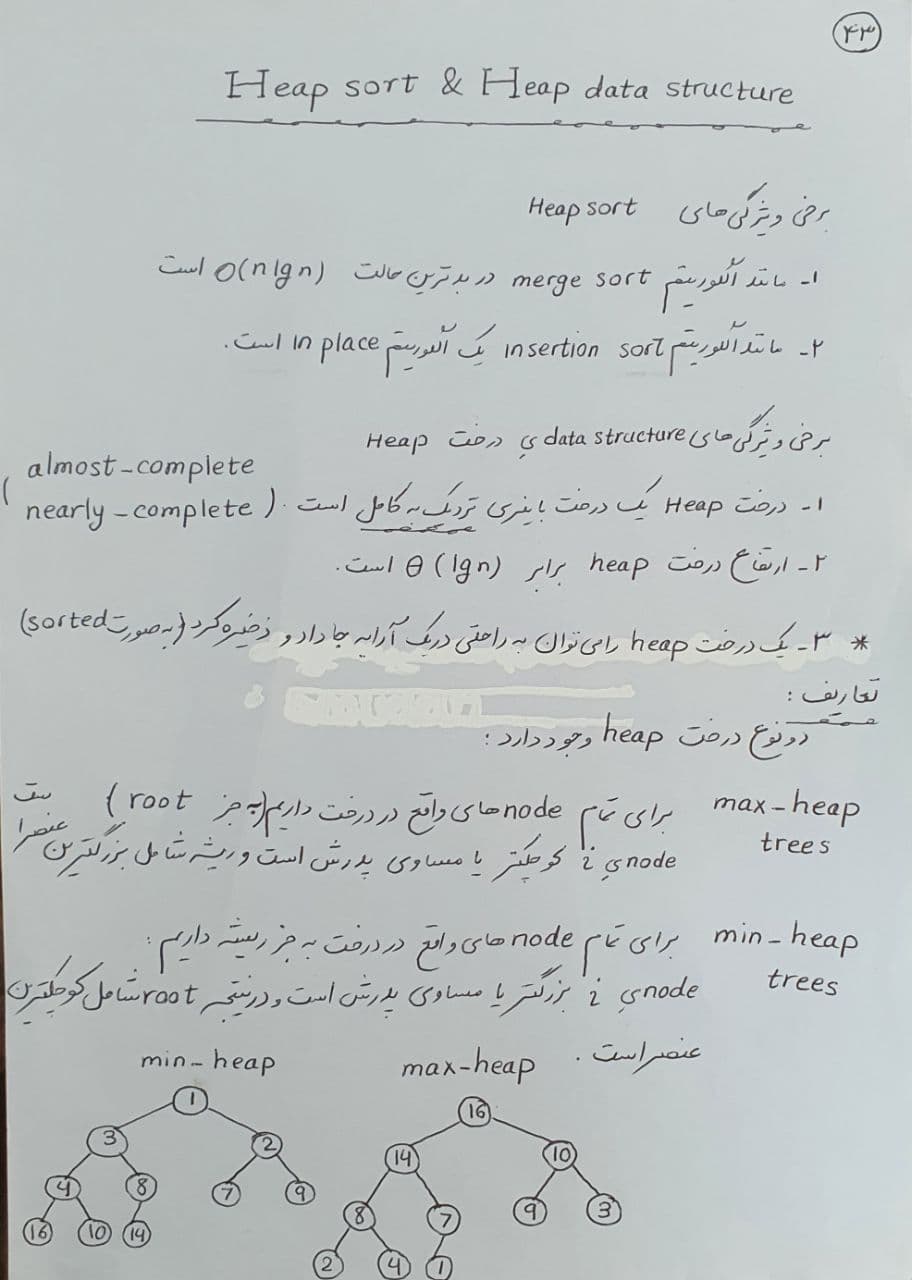 ۴۳
Heap sort & Heap data structure
برخی ویژگی‌های Heap sort
۱- مانند الگوریتم merge sort در بدترین حالت O(nlgn) است
۲- مانند الگوریتم insertion sort یک الگوریتم in place است.
برخی ویژگی‌های data structure ی درخت Heap
۱- درخت Heap یک درخت باینری نزدیک به کامل است. (almost-complete
nearly-complete)
۲- ارتفاع درخت heap برابر θ(lgn) است.
* ۳- یک درخت heap را می‌توان به راحتی در یک آرایه جا داد و ذخیره کرد (به صورت sorted)
تعاریف :
دو نوع درخت heap وجود دارد :
max-heap trees برای تمام node های واقع در درخت داریم (به جز root)
node ی i کوچکتر یا مساوی پدرش است و ریشه شامل بزرگترین عنصر است
min-heap trees برای تمام node های واقع در درخت به جز ریشه داریم :
node ی i بزرگتر یا مساوی پدرش است و در نتیجه root شامل کوچکترین
عنصر است.
max-heap
16
14 10
8 7 9 3
2 4 1
min-heap
1
3 2
4 8 7 9
16 10 14